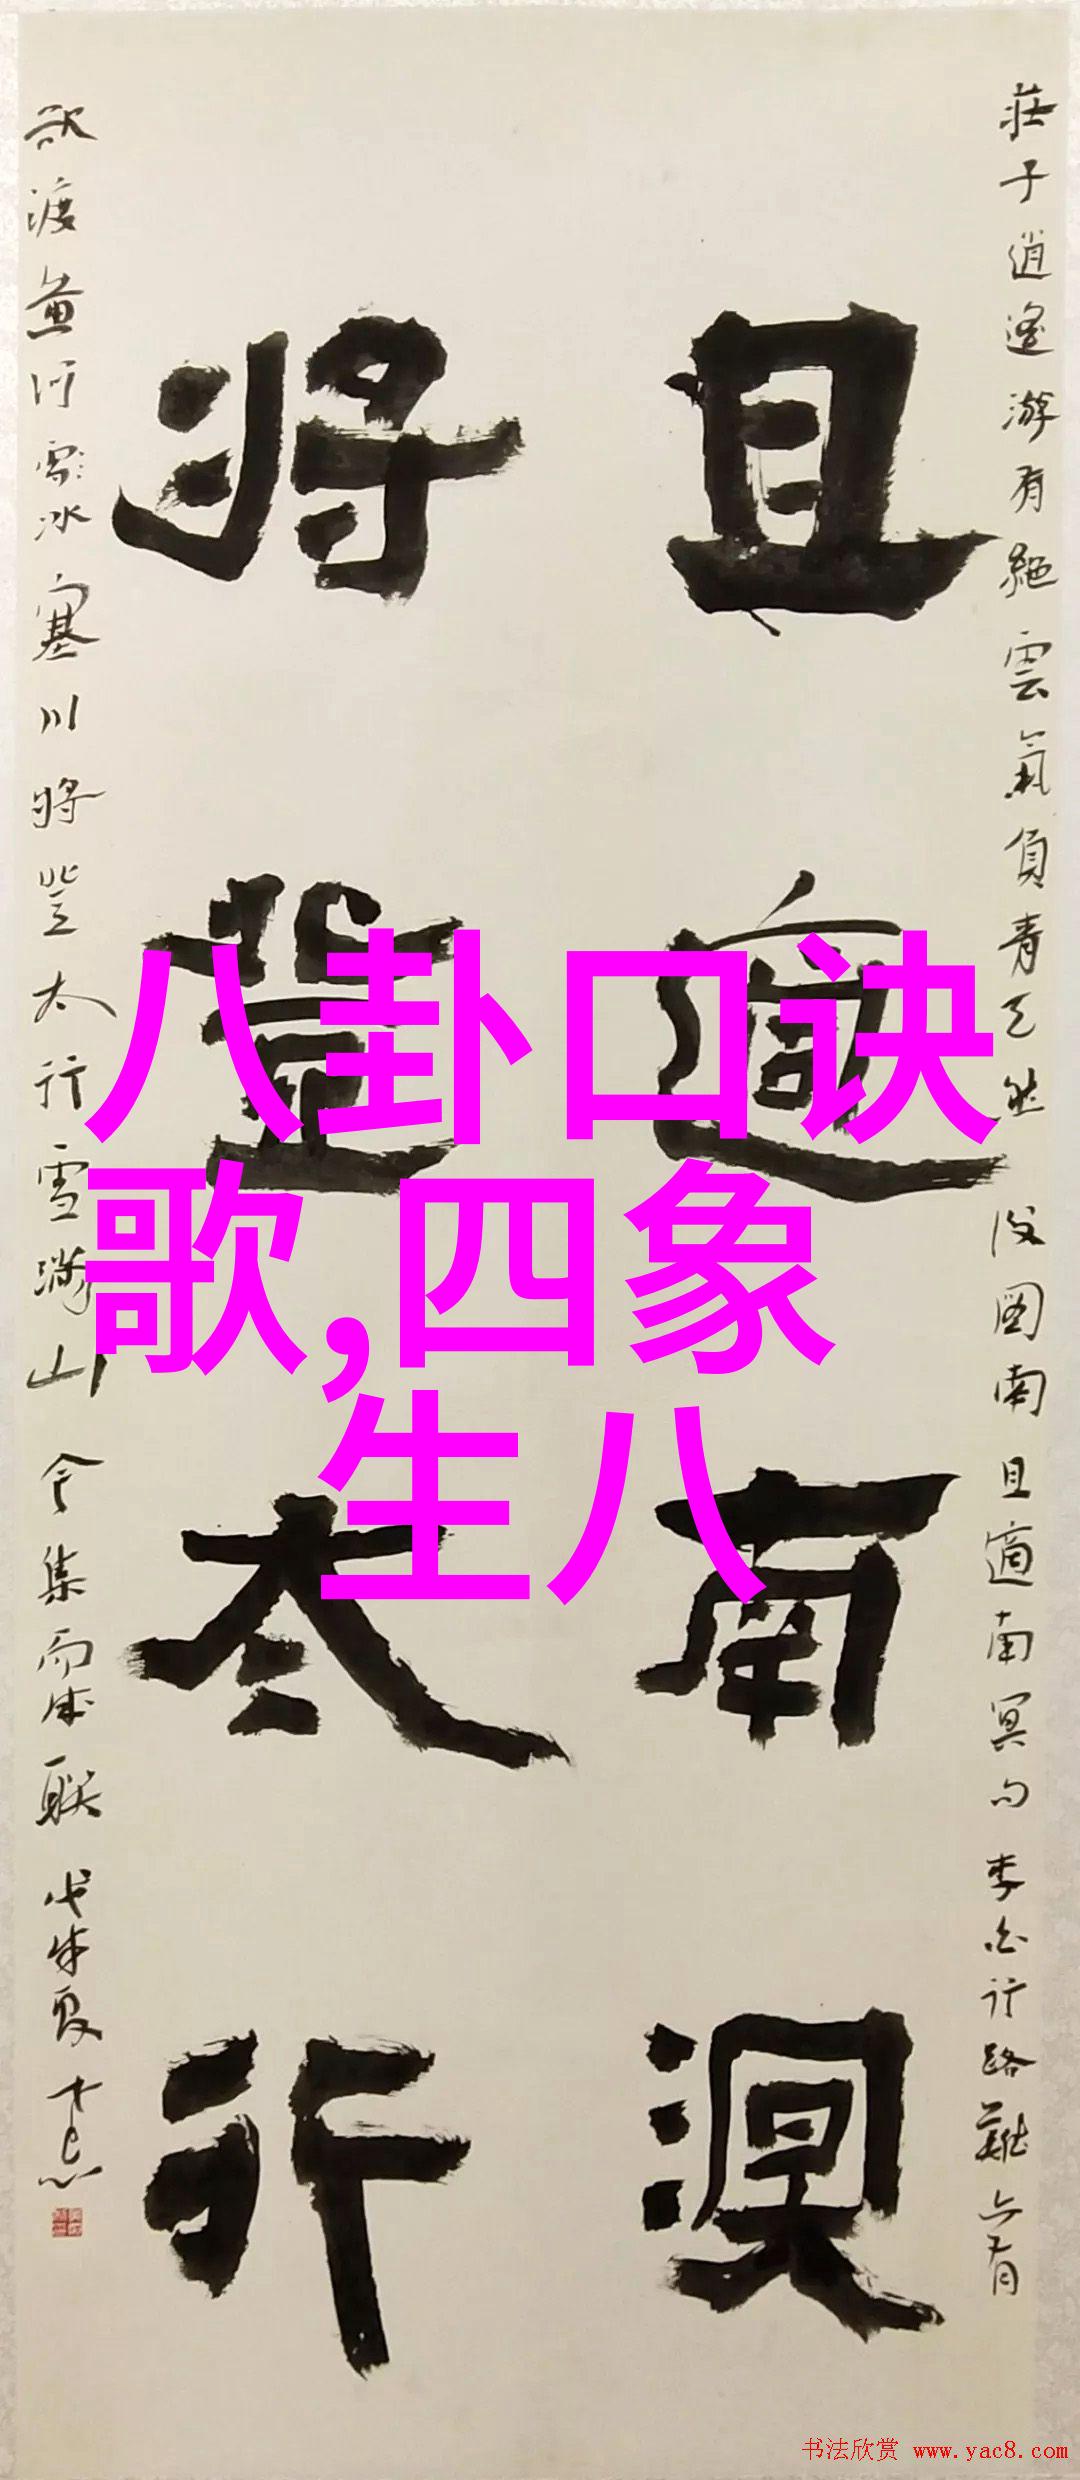 莊子逍遙游有絕雲氣負青天然後圖南且適南冥句李白行路難亦有
且適南溟
將登太行
欲渡黃河冰塞川將登太行雪滿山今集而成聯戊戌夏
八卦口诀
歌,四象
生八
书法欣赏 www.yac8.com